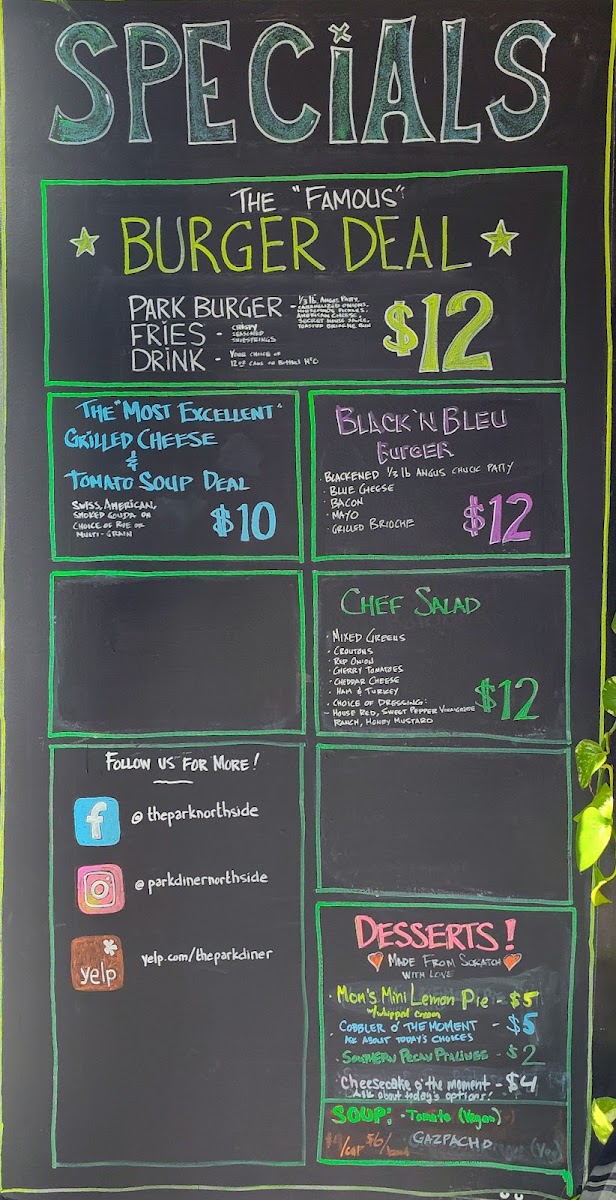 SPECiALS
THE "FAMOUS"
BURGER DEAL
PARK BURGER - 1/3 lb ANGUS PATTY,
CARAMELIZED ONIONS,
HOUSEMADE PICKLES,
AMERICAN CHEESE,
SECRET HOUSE SAUCE,
TOASTED BRIOCHE BUN
FRIES - CRISPY
SEASONED
SHOESTRINGS
DRINK - YOUR CHOICE OF
12 oz CANS OR BOTTLED H2O
$12
THE "MOST EXCELLENT"
GRILLED CHEESE
&
TOMATO SOUP DEAL
SWISS, AMERICAN,
SMOKED GOUDA ON
CHOICE OF RYE OR
MULTI-GRAIN
$10
BLACK 'N BLEU
BURGER
· BLACKENED 1/3 lb ANGUS CHUCK PATTY
· BLUE CHEESE
· BACON
· MAYO
· GRILLED BRIOCHE
$12
CHEF SALAD
· MIXED GREENS
· CROUTONS
· RED ONION
· CHERRY TOMATOES
· CHEDDAR CHEESE
· HAM & TURKEY
· CHOICE OF DRESSING:
- HOUSE RED, SWEET PEPPER VINAIGRETTE
RANCH, HONEY MUSTARD
$12
FOLLOW US FOR MORE!
f @theparknorthside
@parkdinernorthside
yelp yelp.com/theparkdiner
DESSERTS!
MADE FROM SCRATCH
WITH LOVE
· Mom's Mini Lemon Pie - $5
w/whipped cream
· COBBLER O' THE MOMENT - $5
ASK ABOUT TODAY'S CHOICES
· SOUTHERN PECAN PRALINES - $2
· Cheesecake o' the moment - $4
Ask about today's options!
SOUP: · Tomato (Vegan)
/cup $6/
GAZPACHO